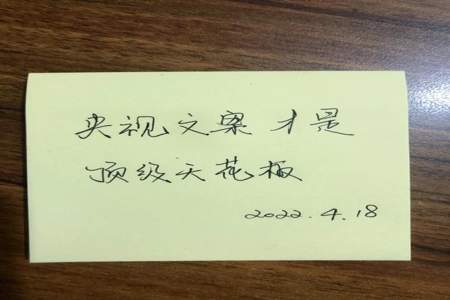 央视文案才是
顶级天花板
2022.4.18